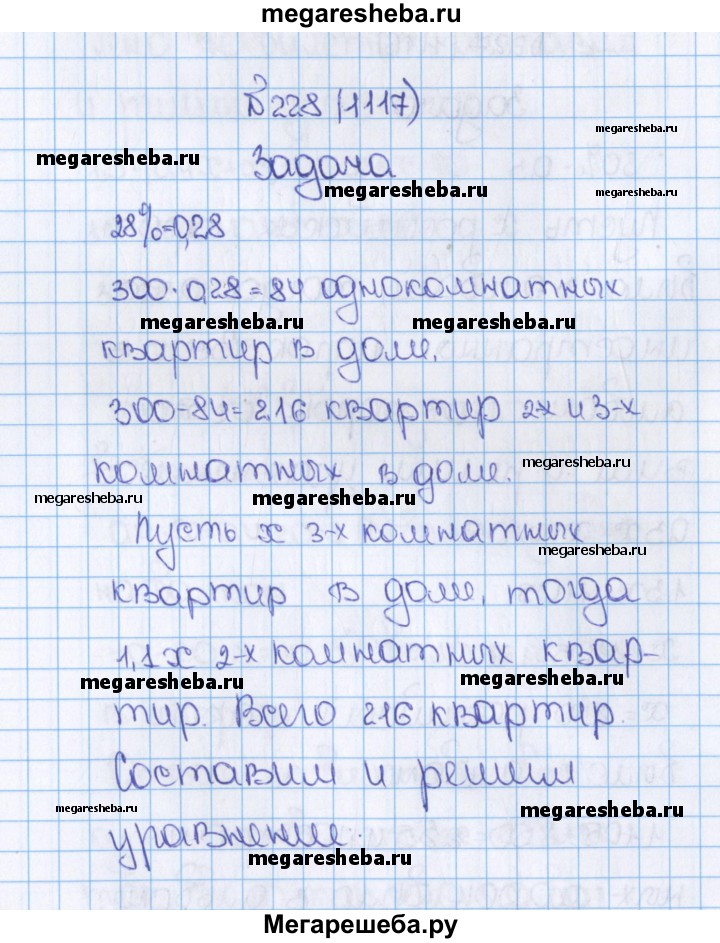 megaresheba.ru
№228 (1117)
megaresheba.ru
megaresheba.ru Задача
megaresheba.ru megaresheba.ru
28%=0,28
300·0,28=84 однокомнатных
megaresheba.ru megaresheba.ru
квартир в доме.
300-84=216 квартир 2х и 3-х
комнатных в доме. megaresheba.ru
megaresheba.ru megaresheba.ru
Пусть х 3-х комнатных
megaresheba.ru
квартир в доме, тогда
1,1х 2-х комнатных квар-
megaresheba.ru megaresheba.ru
тир. Всего 216 квартир.
Составим и решим
megaresheba.ru megaresheba.ru
уравнение.
megaresheba.ru
Мегарешеба.ру